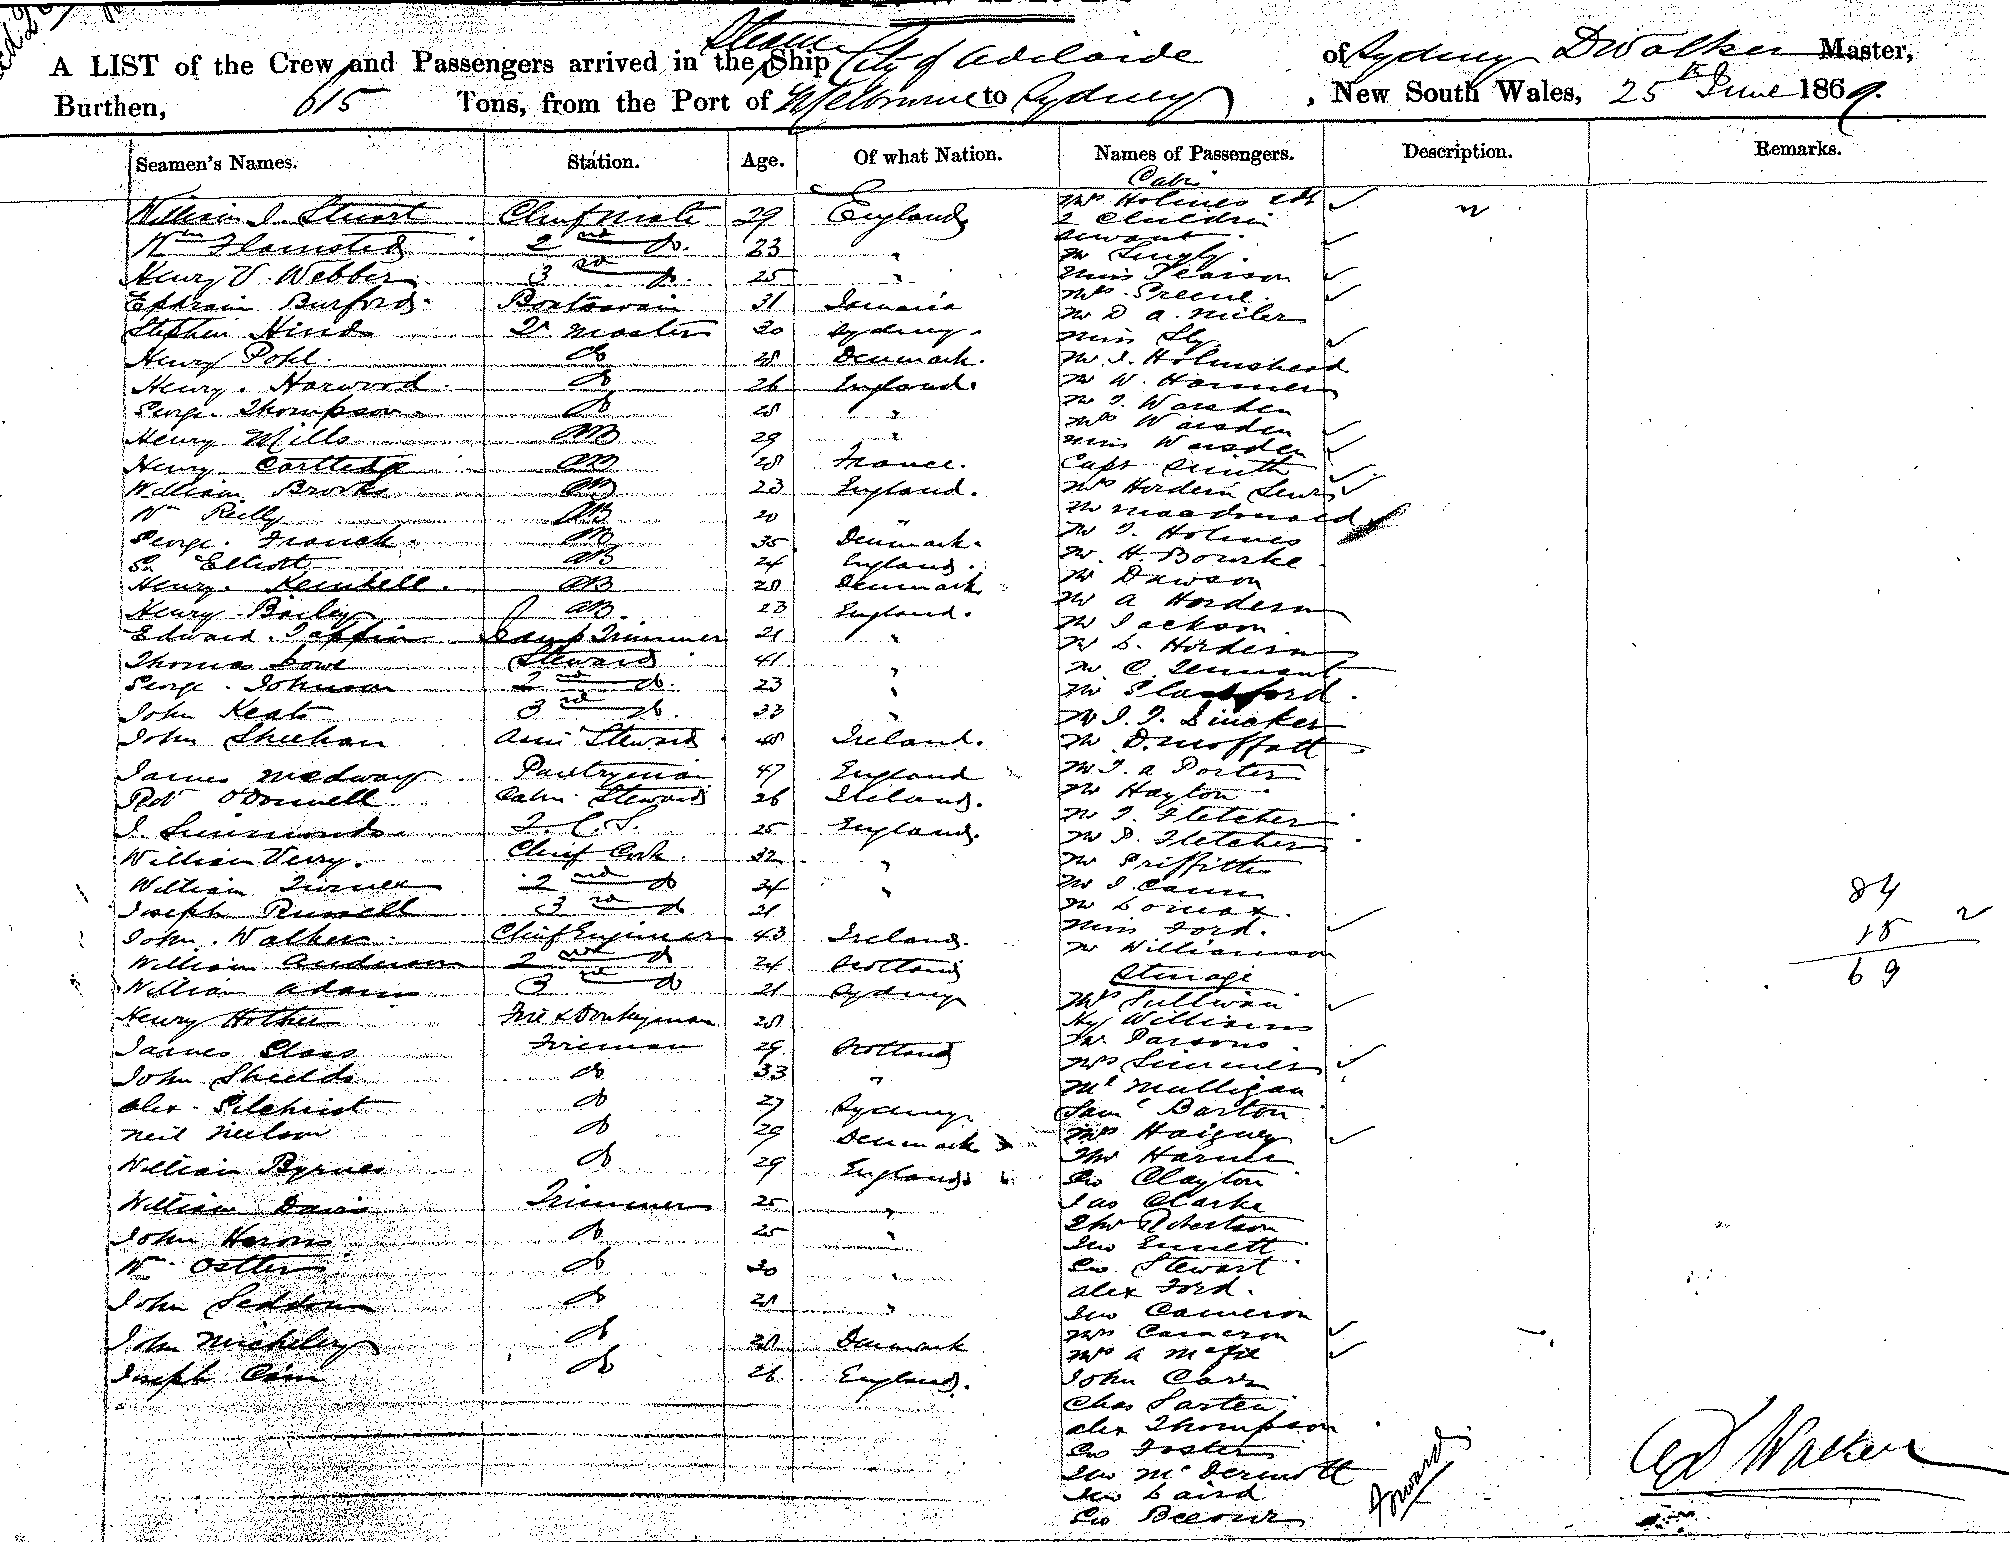 A LIST of the Crew and Passengers arrived in the Steam Ship City of Adelaide of Sydney D Walker Master,
Burthen, 615 Tons, from the Port of Melbourne to Sydney, New South Wales, 25th June 1869.
Seamen's Names. Station. Age. Of what Nation. Names of Passengers. Description. Remarks.
William J. Stuart Chief Mate 29 England
Wm Flamsted 2nd do. 23 "
Henry V. Webber 3rd do. 25 "
Ephraim Burford Boatswain 31 Jamaica
Stephen Hind Qr Master 30 Sydney.
Henry Pohl. do 28 Denmark.
Henry. Harwood do 26 England.
George Thompson do 28 "
Henry Mills AB 29 "
Henry Cartledge AB 28 France.
William Brooks AB 23 England.
Wm Reilly AB 20 "
George. Franck. AB 35 Denmark.
G. Elliott AB 24 England.
Henry. Kembell. AB 28 Denmark
Henry Bailey AB. 23 England.
Edward Taffin Lamp Trimmer 21 "
Thomas Dowd Steward 41 "
George. Johnson 2nd do. 23 "
John Keats 3rd do. 33 "
John Sheehan Assist Steward 48 Ireland.
James Medway Pantryman 47 England
Robt O'Donnell Cabin Steward 26 Ireland.
J. Simmonds F. C. S. 25 England.
William Verry. Chief Cook 32 "
William Turner 2nd do 24 "
Joseph Russell 3rd do 21
John. Walker Chief Engineer 43 Ireland.
William Anderson 2nd do 24 Scotland
William Adams 3rd do 21 Sydney
Henry Hother Fire & Donkeyman 28
James Glass Fireman 29 Scotland
John Shields do 33 "
Alex. Gilchrist do 27 Sydney
Neil Neilson do 29 Denmark
William Byrnes do 29 England
William Davis Trimmer 25 "
John Herons do 25 "
Wm Oetter do 30 "
John Seddon do 28 "
John Micheley do 28 Denmark
Joseph Cain do 26 England.
Cabin
Mrs Holmes &
2 Children
Servant
Mr Lingly.
Miss Pearson
Mrs Greene.
Mr D A. Miler
Miss Sly
Mr J. Holmshead
Mr W. Harmer
Mr T. Warsden
Mrs Warsden
Miss Warsden
Capt Smith
Mrs Hordern Senr
Mr Macdonald
Mr T. Holmes
Mr. H. Bourke
Mr Dawson
Mr A Hordern
Mr Jackson
Mr L. Hordern
Mr. C. Tennant
Mr
Mr J. T. Dineker
Mr D. Moffatt
Mr J. A Porter
Mr Hayton
Mr T. Fletcher
Mr P. Fletcher
Mr Griffiths
Mr J Cann
Mr Lomax.
Miss Ford.
Mr Williamson
Steerage
Mrs Sullivan
Hy Williams
Mr. Parsons.
Mrs Simmer
Mr Mulligan
Saml Barton
Mrs Haigney
Thos Harme
Geo Clayton
Jas Clarke
Thos Robertson
Jno Emmett
Geo Stewart
Alex Ford.
Jno Cameron
Mrs Cameron
Mrs A McFie
John Carr
Chas Sarten
Alex Thompson
Geo Foster
Jno McDermott
Jno Laird
Geo
Forward
84
15
69
D Walker